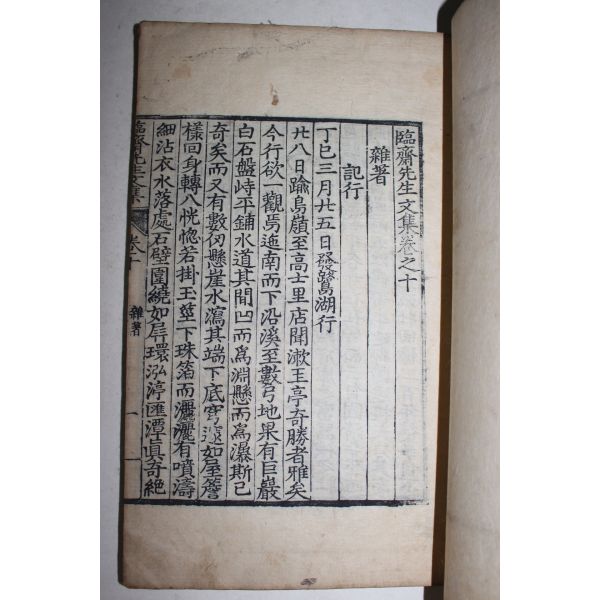 臨齋先生文集卷之十
雜著
記行
丁巳三月廿五日發鷺湖行
廿八日踰鳥嶺至高士里店聞漱玉亭奇勝者雅矣
今行欲一觀焉迤南而下沿溪至數弓地果有巨巖
白石盤峙平鋪水道其間凹而爲淵懸而爲瀑斯已
奇矣而又有數仞懸崖水瀉其端下底穹邃如屋簷
樣回身轉入恍惚若掛玉筵下珠箔而灑灑有噴濤
細沾衣水落處石壁圍繞如屛環泓渟匯潭眞奇絶
臨齋先生文集 卷十 雜著 一